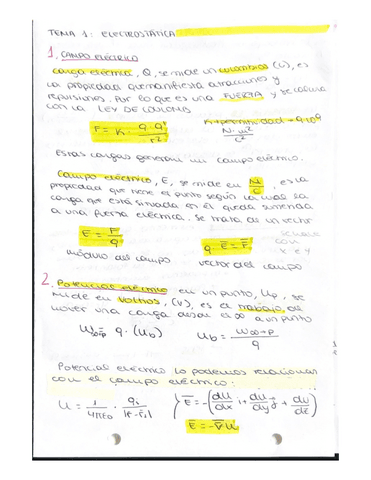 TEMA 1: ELECTROSTÁTICA
1. CAMPO ELÉCTRICO
Carga eléctrica, Q, se mide en culombios (C), es
la propiedad que manifiesta atracciones y
repulsiones. Por lo que es una FUERZA y se calcula
con la LEY DE COULOMB
F = K · q · q' / r²
N·m² / C²
Estas cargas generan un campo eléctrico.
Campo eléctrico, E, se mide en N/C, es la
propiedad que tiene el punto según la cual la
carga que está situada en él queda sometida
a una fuerza eléctrica. Se trata de un vector
E = F/q
q · E = F
con
x e y
módulo del campo
vector del campo
2. Potencial eléctrico en un punto, Up, se
mide en voltios, (V), es el trabajo de
mover una carga desde el ∞ a un punto
= q · (Ub)
Ub = W∞→p / q
Potencial eléctrico lo podemos relacionar
con el campo eléctrico:
U = 1/4πε0 ·
E = -(dU/dx i + dU/dy j + dU/dz)
E = -∇U